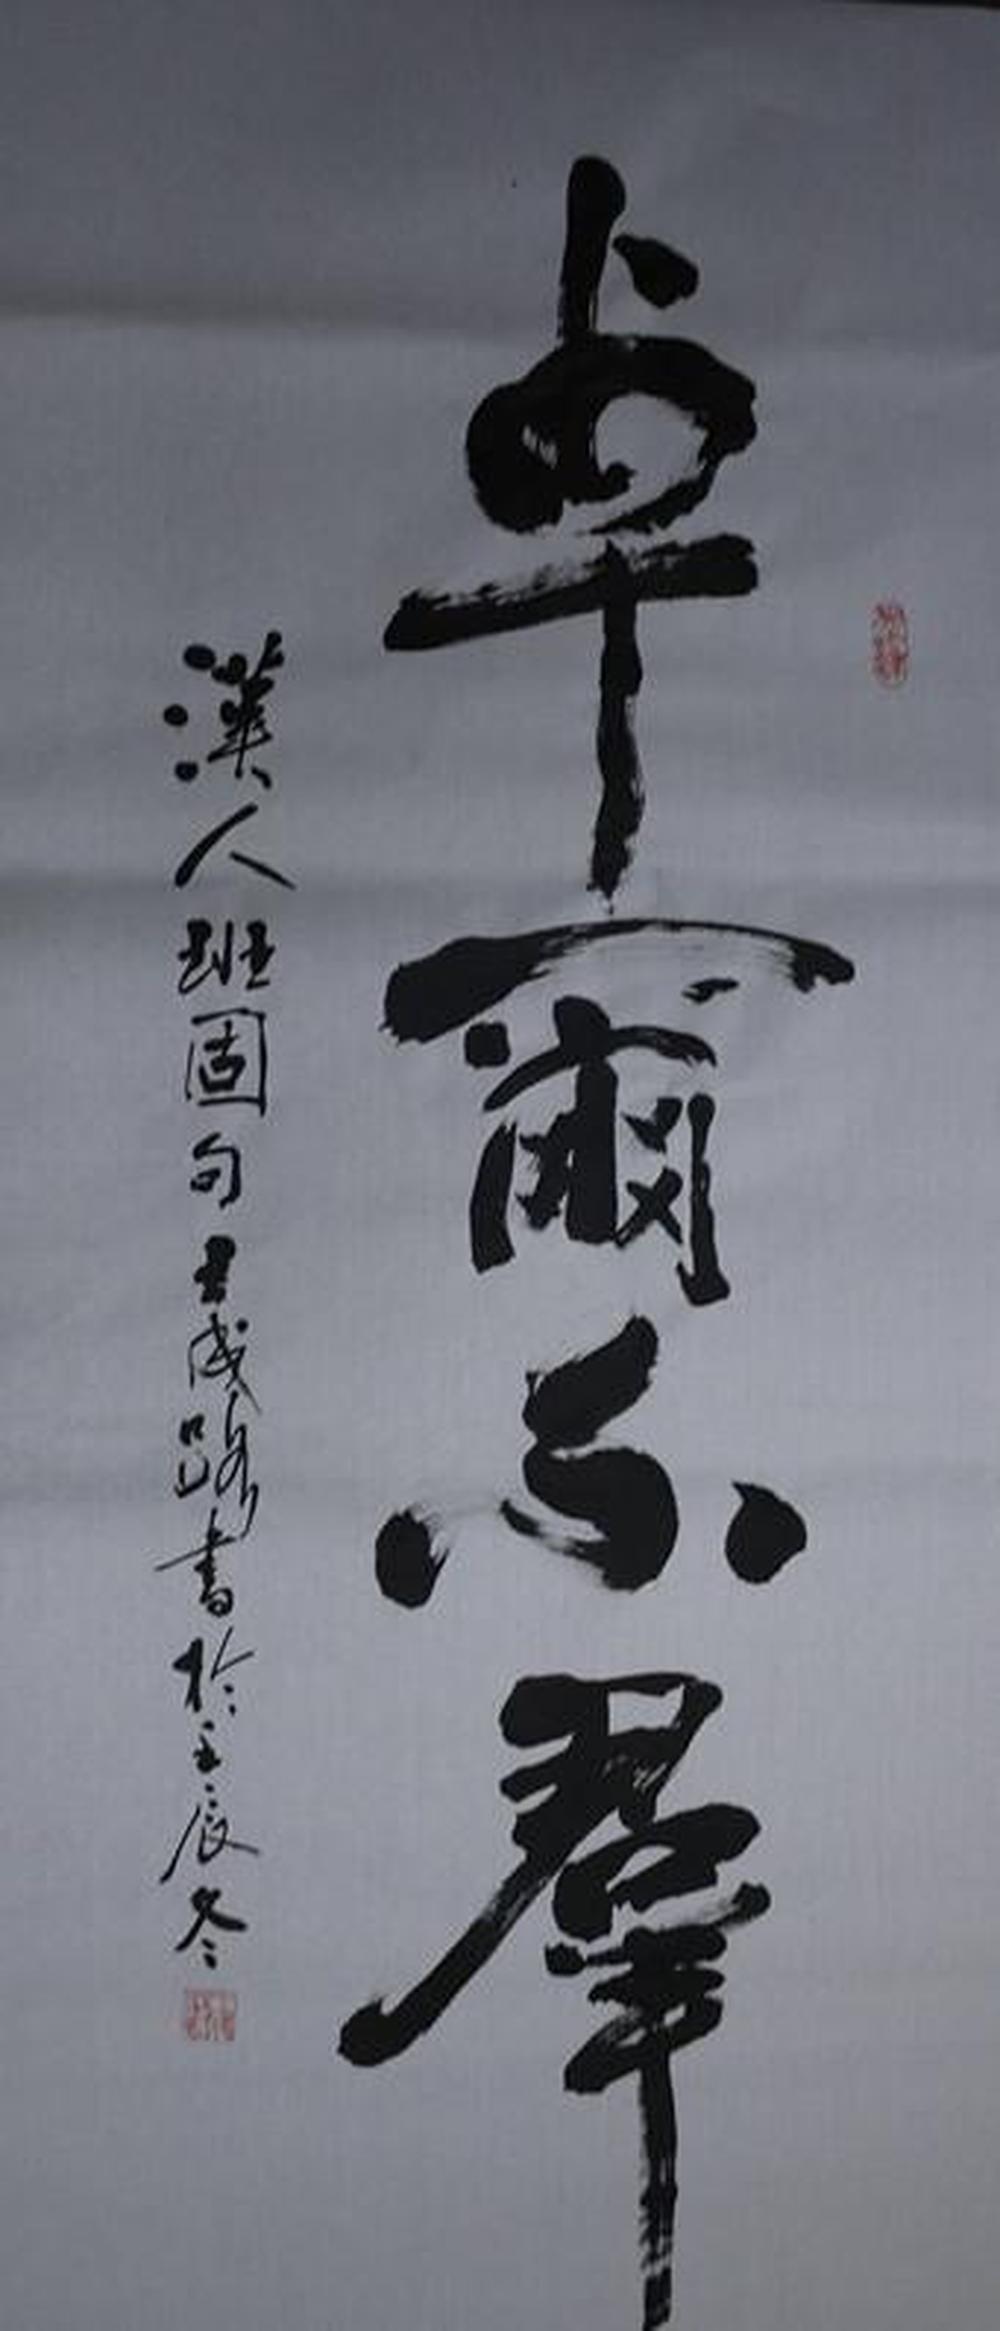 卓爾不羣
漢人班固句王成路書於壬辰冬